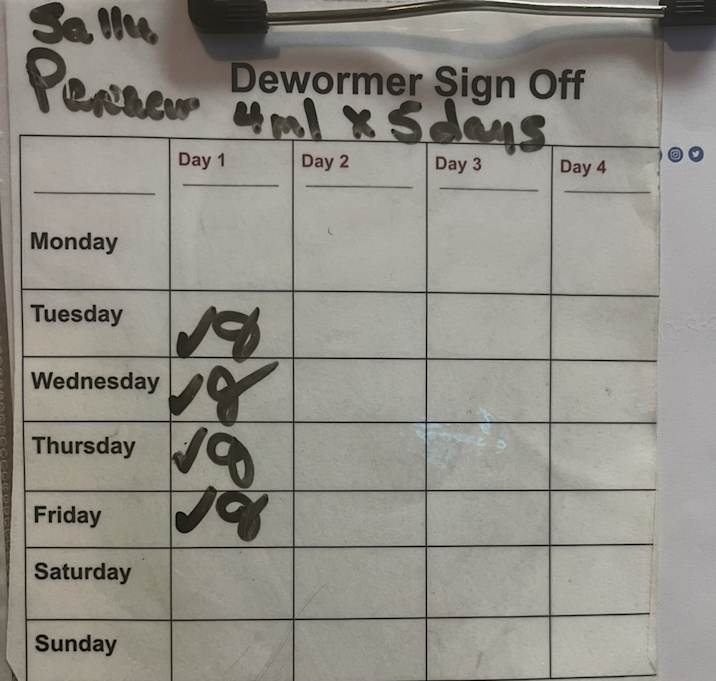 Sally
Dewormer Sign Off
4ml x 5 days
Day 1 Day 2 Day 3 Day 4
Monday
Tuesday ✓
Wednesday ✓
Thursday ✓
Friday ✓
Saturday
Sunday